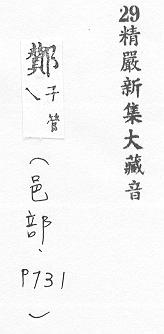 29精嚴新集大藏音
子管
(邑部、P731)